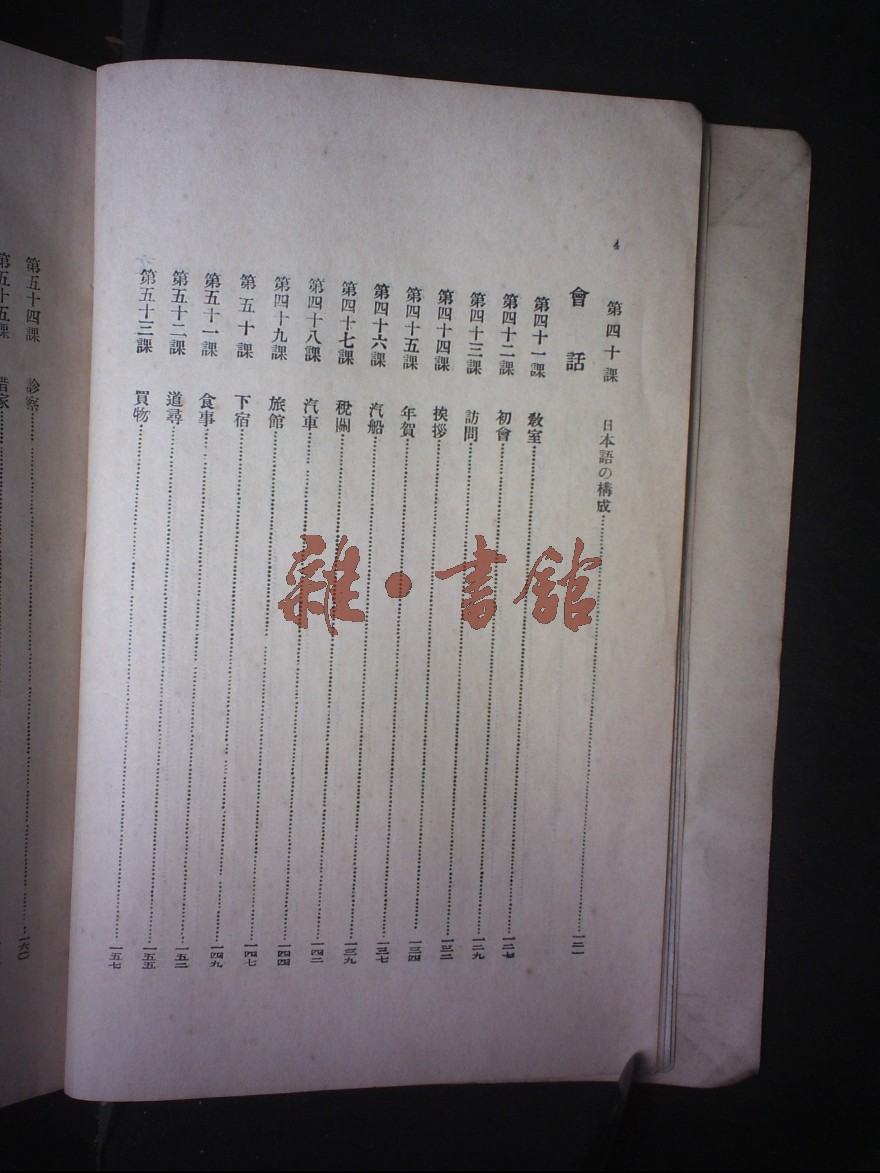 4
第四十課 日本語の構成…………一二一
會話
第四十一課 教室…………一二七
第四十二課 初會…………一二九
第四十三課 訪問…………一三二
第四十四課 挨拶…………一三四
第四十五課 年賀…………一三七
第四十六課 汽船…………一三九
第四十七課 稅關…………一四二
第四十八課 汽車…………一四四
第四十九課 旅館…………一四七
第五十課 下宿…………一四九
第五十一課 食事…………一五二
第五十二課 道尋…………一五五
第五十三課 買物…………一五七
第五十四課 診察…………一六〇
第五十五課 借家…………
雜·書館